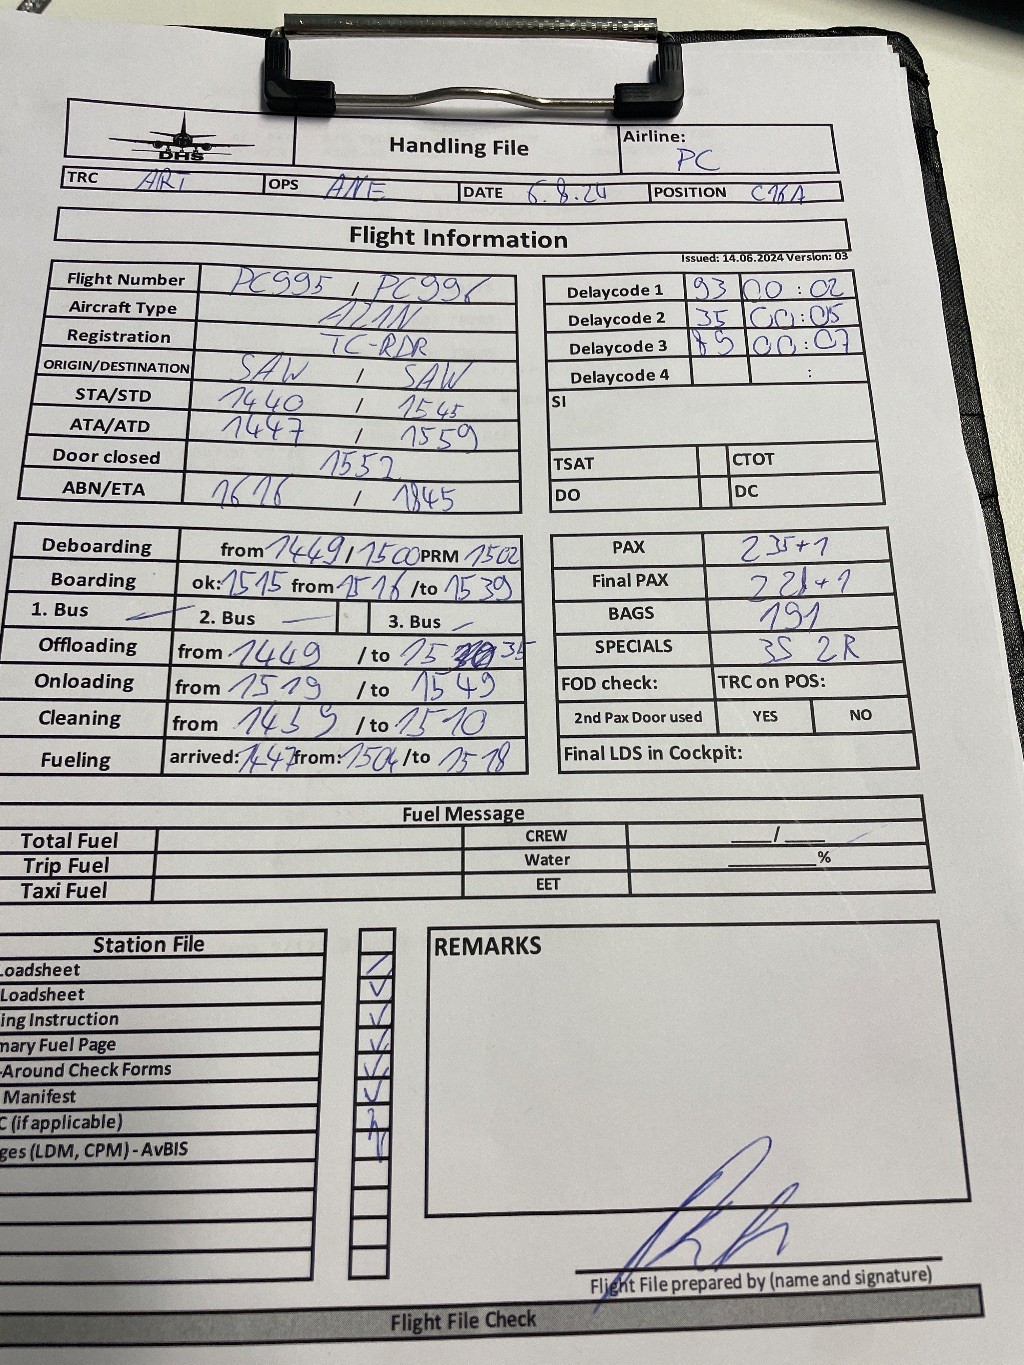 DHS
Handling File
Airline:
PC
TRC ART OPS ANE DATE 6.8.24 POSITION C16A
Flight Information
Issued: 14.06.2024 Version: 03
Flight Number PC995 / PC996
Aircraft Type A21N
Registration TC-RDR
ORIGIN/DESTINATION SAW / SAW
STA/STD 1440 / 1545
ATA/ATD 1447 / 1559
Door closed 1552
ABN/ETA 1616 / 1845
Delaycode 1 93 00:02
Delaycode 2 35 00:05
Delaycode 3 89 00:07
Delaycode 4 :
SI
TSAT CTOT
DO DC
Deboarding from 1449 / 1500 PRM 1502
Boarding ok: 1515 from 1516 /to 1539
1. Bus 2. Bus 3. Bus
Offloading from 1449 / to 15 35
Onloading from 1519 / to 1549
Cleaning from 1459 / to 1510
Fueling arrived: 1447 from: 1504 /to 1518
PAX 235+1
Final PAX +1
BAGS 191
SPECIALS 3S 2R
FOD check: TRC on POS:
2nd Pax Door used YES NO
Final LDS in Cockpit:
Fuel Message
Total Fuel CREW ____/____
Trip Fuel Water ________%
Taxi Fuel EET
Station File
Loadsheet
Loadsheet
ing Instruction
mary Fuel Page
-Around Check Forms
Manifest
C (if applicable)
ges (LDM, CPM) - AvBIS
REMARKS
Flight File prepared by (name and signature)
Flight File Check